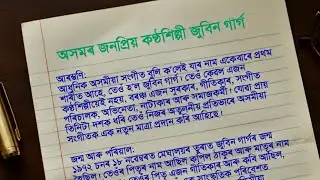 অসমৰ জনপ্ৰিয় কণ্ঠশিল্পী জুবিন গাৰ্গ
আৰম্ভণি:
আধুনিক অসমীয়া সংগীত বুলি ক'লেই যাৰ নাম একেবাৰে প্ৰথম
শাৰীত আহে, তেওঁ হ'ল জুবিন গাৰ্গ। তেওঁ কেৱল এজন
কণ্ঠশিল্পীয়েই নহয়, বৰঞ্চ এজন সুৰকাৰ, গীতিকাৰ, সংগীত
পৰিচালক, অভিনেতা, নাট্যকাৰ আৰু সমাজকৰ্মী। যোৱা প্ৰায়
তিনিটা দশক ধৰি তেওঁ নিজৰ অতুলনীয় প্ৰতিভাৰে অসমীয়া
সংগীতক এক নতুন মাত্ৰা প্ৰদান কৰি আহিছে।
জন্ম আৰু পৰিয়াল:
১৯৭২ চনৰ ১৮ নৱেম্বৰত মেঘালয়ৰ তুৰাত জুবিন গাৰ্গৰ জন্ম
হৈছিল। তেওঁৰ পিতৃৰ নাম আছিল কপিল ঠাকুৰ আৰু মাতৃৰ নাম
আছিল